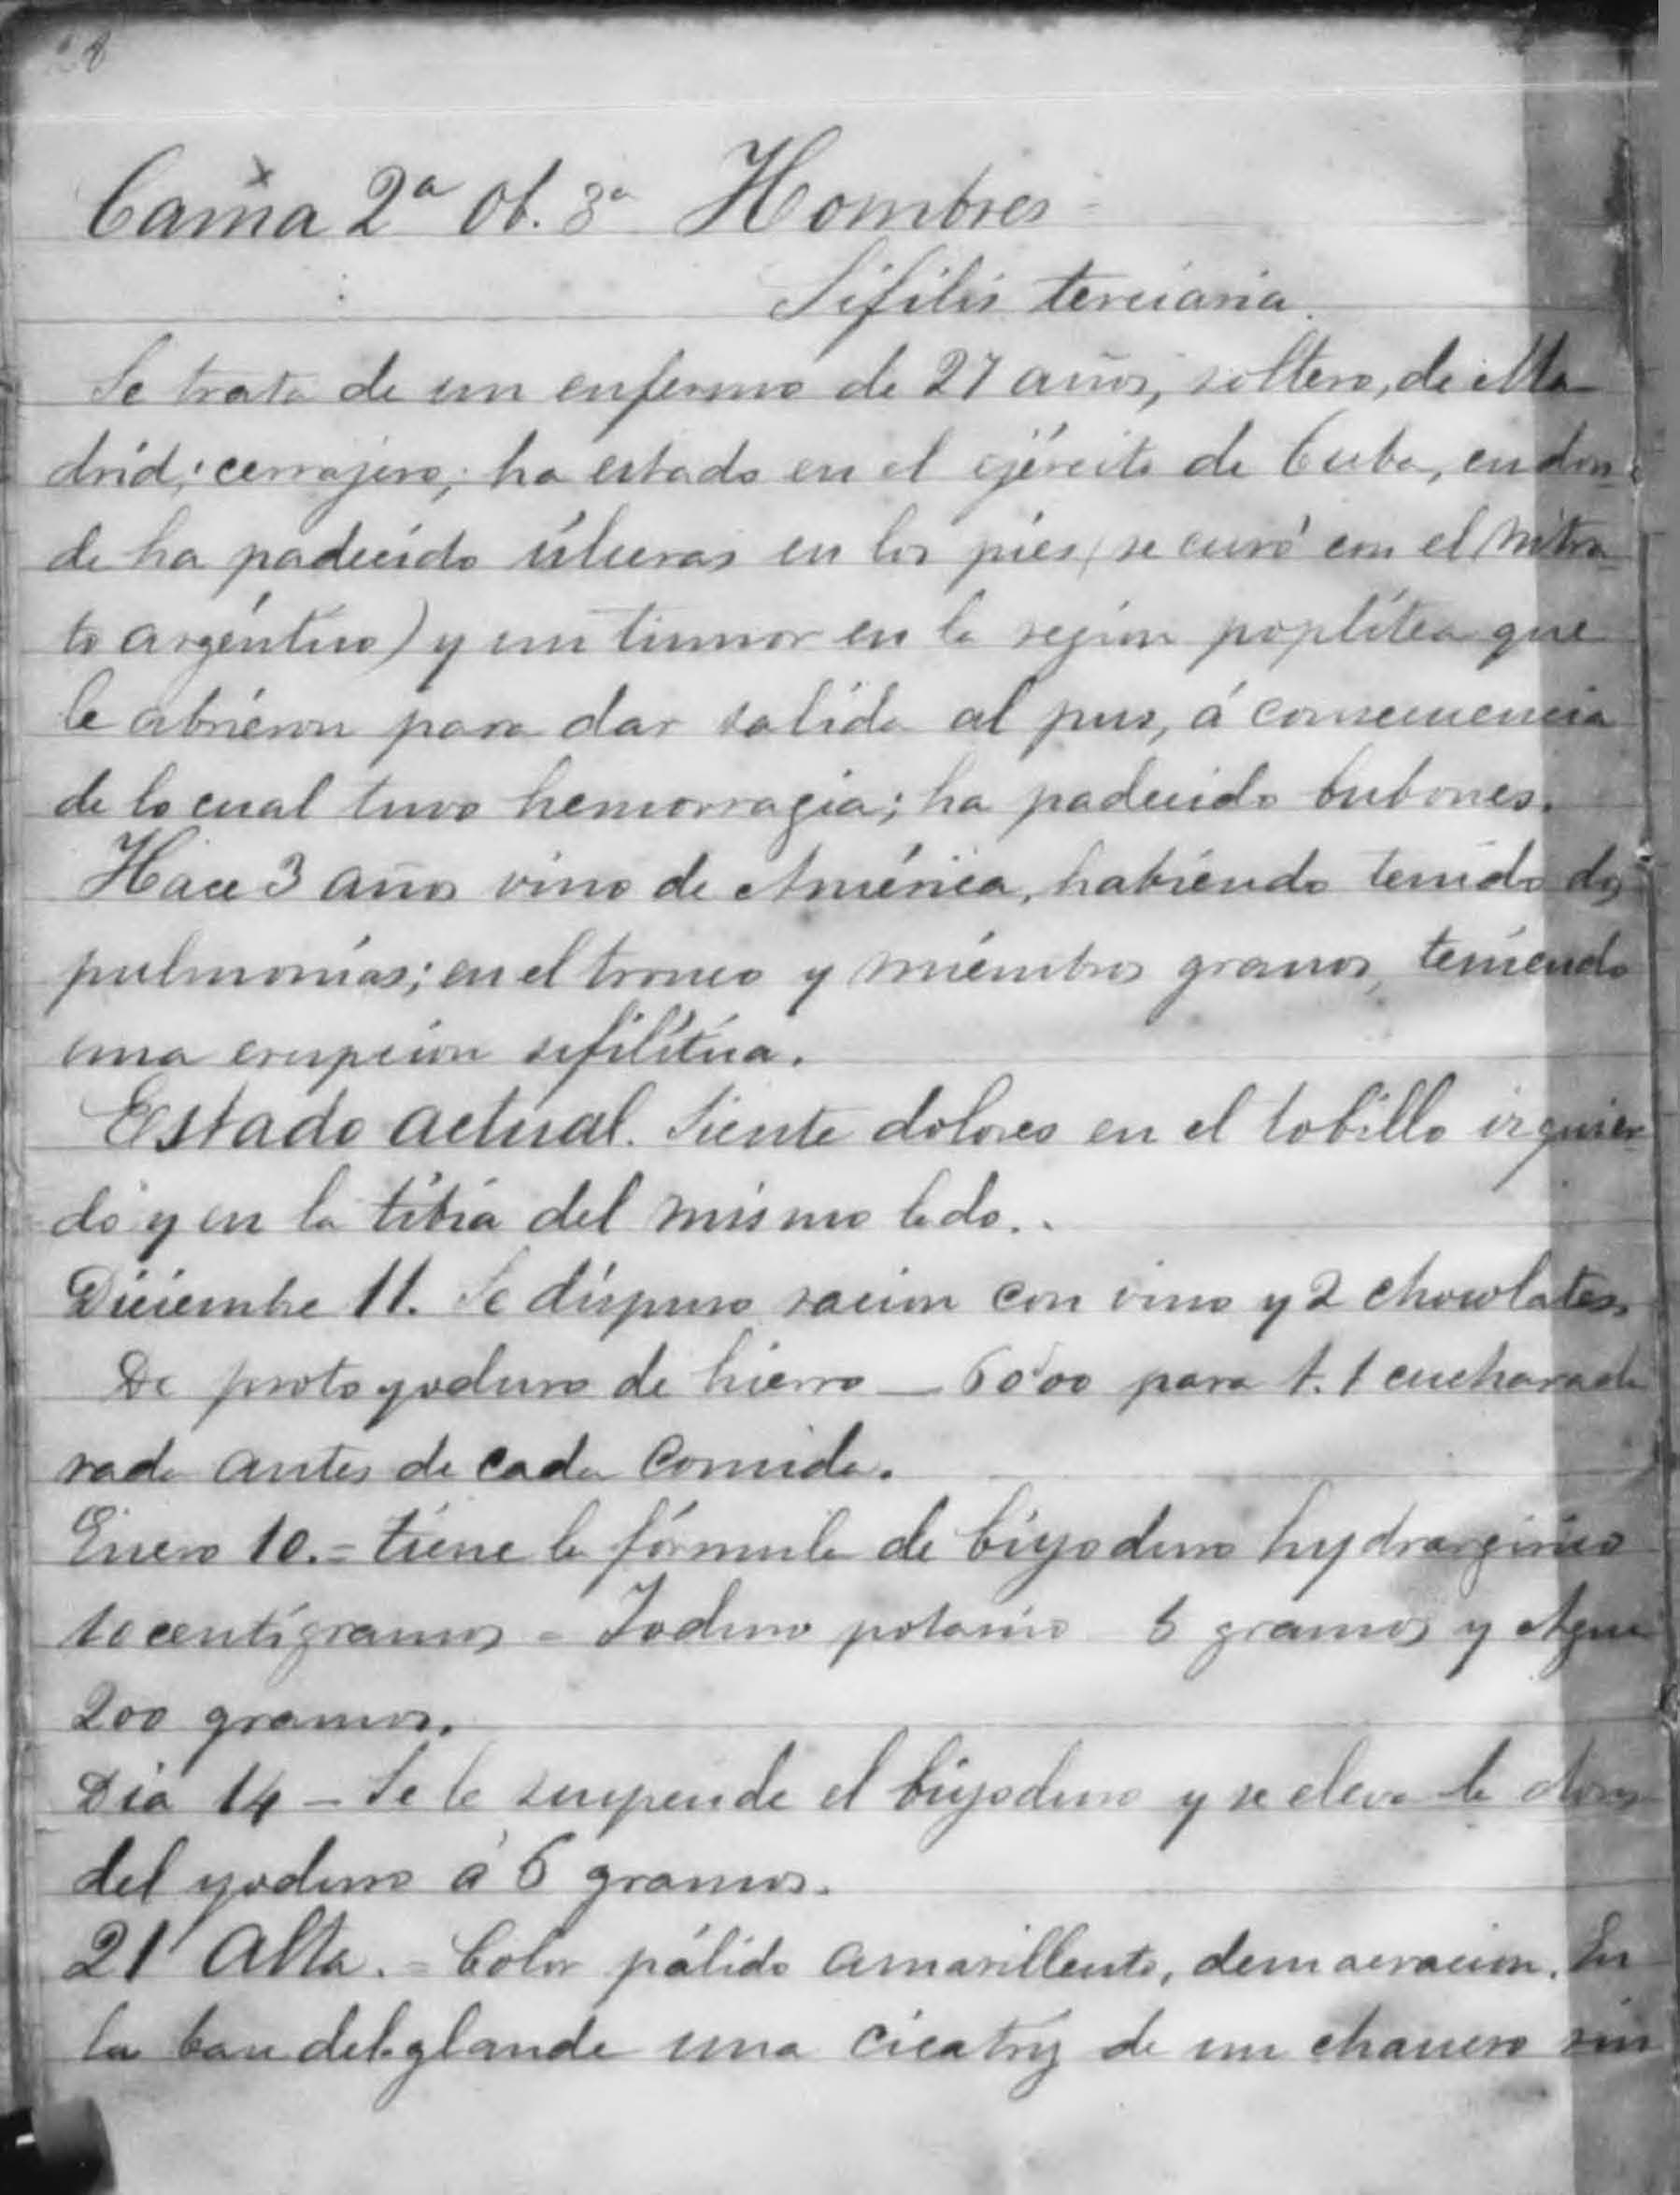 Cama 2ª Ob. 3ª Hombres
Sifilis terciaria.
Se trata de un enfermo de 27 años, soltero, de Ma
drid; cerrajero; ha estado en el ejército de Cuba, en don-
de ha padecido úlceras en los piés (se curó con el nitra-
to argéntico) y un tumor en la region poplítea que
le abrieron para dar salida al pus, á consecuencia
de lo cual tuvo hemorragia; ha padecido bubones.
Hace 3 años vino de América, habiendo tenido dos
pulmonías; en el tronco y miémbros granos, teniendo
una erupcion sifilítica.
Estado actual. Siente dolores en el tobillo izquier-
do y en la tibia del mismo lado.
Diciembre 11. Se dispuso racion con vino y 2 chocolates.
De proto yoduro de hierro — 60'00 para t. 1 cucharada
rada antes de cada comida.
Enero 10.= tiene la fórmula de biyoduro hydrargirico
10 centígramos = Ioduro potasico 5 gramos y Agua
200 gramos.
Dia 14 — Se le suspende el biyoduro y se eleva la dosis
del yoduro á 6 gramos.
21 Alta. = Color pálido amarillento, demacracion. En
la base del glande una cicatriz de un chancro sin